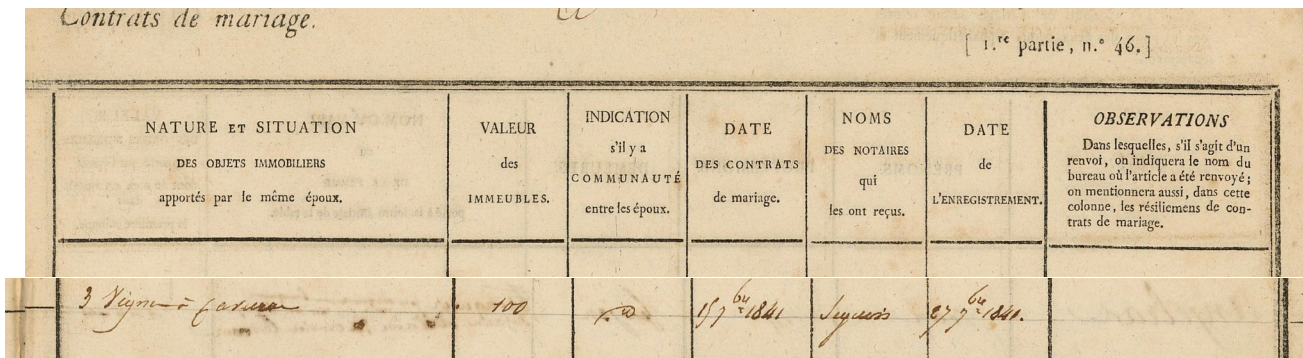 Contrats de mariage.
[ 1.re partie, n.° 46.]
NATURE ET SITUATION
DES OBJETS IMMOBILIERS
apportés par le même époux.
VALEUR
des
IMMEUBLES.
INDICATION
s'il y a
COMMUNAUTÉ
entre les époux.
DATE
DES CONTRATS
de mariage.
NOMS
DES NOTAIRES
qui
les ont reçus.
DATE
de
L'ENREGISTREMENT.
OBSERVATIONS
Dans lesquelles, s'il s'agit d'un
renvoi, on indiquera le nom du
bureau où l'article a été renvoyé;
on mentionnera aussi, dans cette
colonne, les résiliemens de con-
trats de mariage.
3 Vigne à
100
15 7bre 1841
27 7bre 1841.